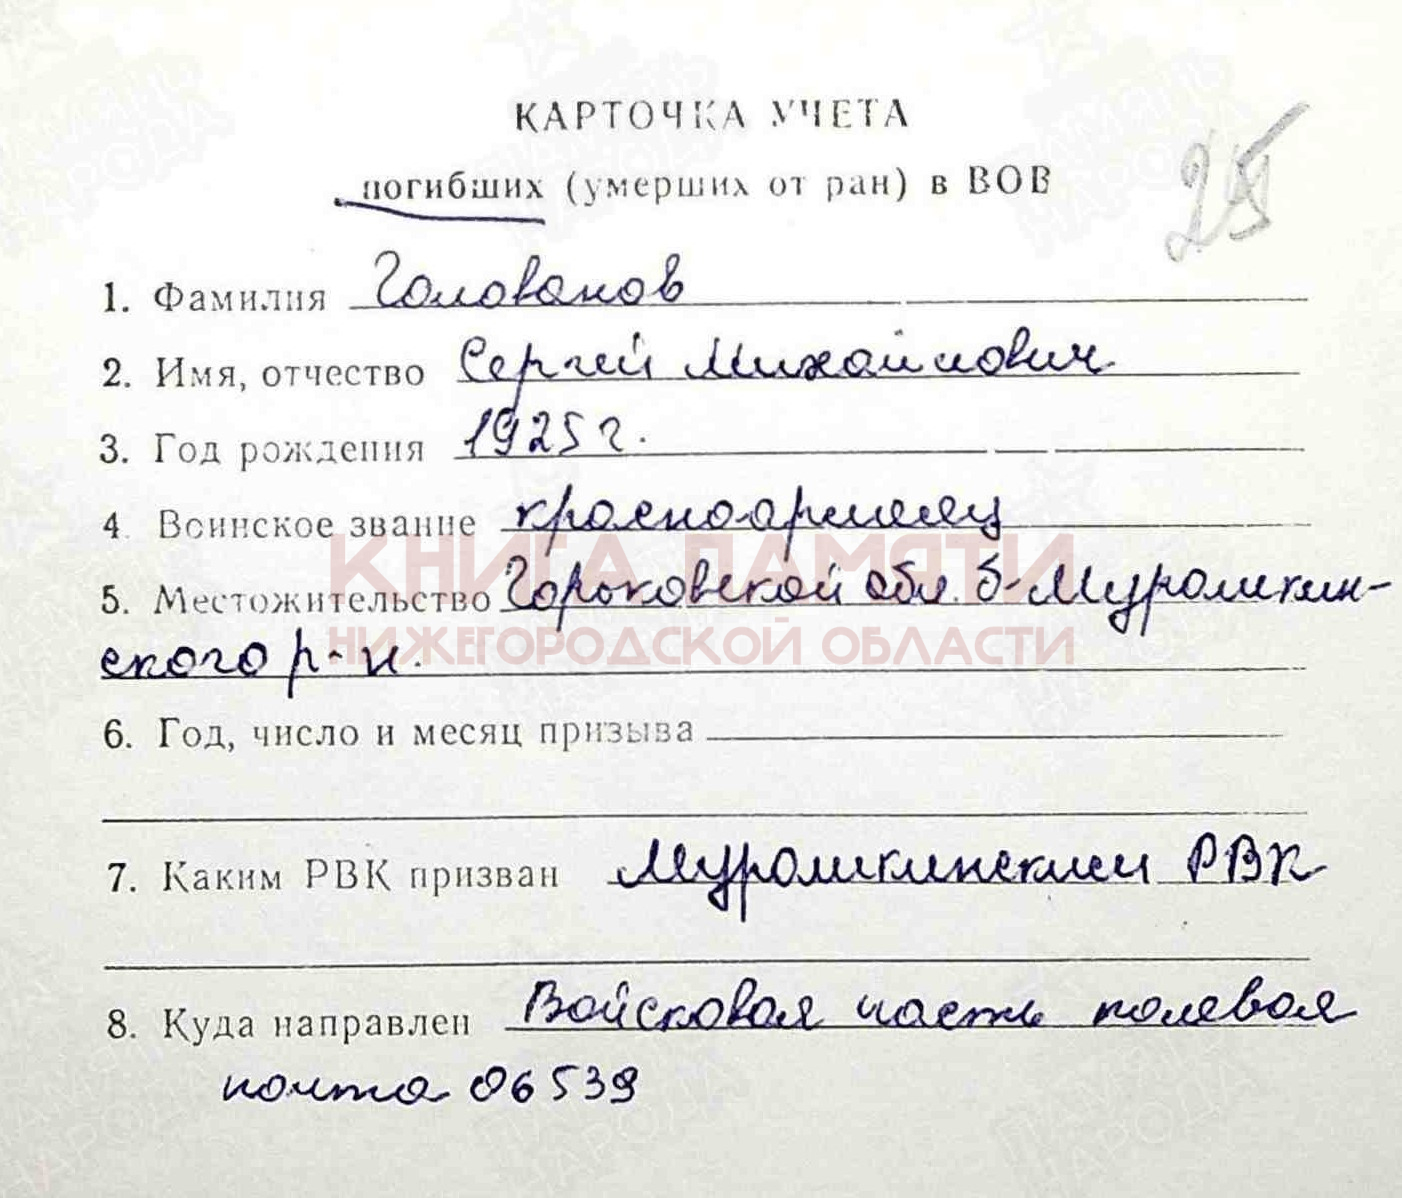 КАРТОЧКА УЧЕТА
погибших (умерших от ран) в ВОВ
25
1. Фамилия Голованов
2. Имя, отчество Сергей Михайлович
3. Год рождения 1925 г.
4. Воинское звание красноармеец
КНИГА ПАМЯТИ
5. Местожительство Горьковской обл. б-Мурашкин-
НИЖЕГОРОДСКОЙ ОБЛАСТИ
ского р-н.
6. Год, число и месяц призыва
7. Каким РВК призван Мурашкинским РВК
8. Куда направлен Войсковая часть полевая
почта 06539